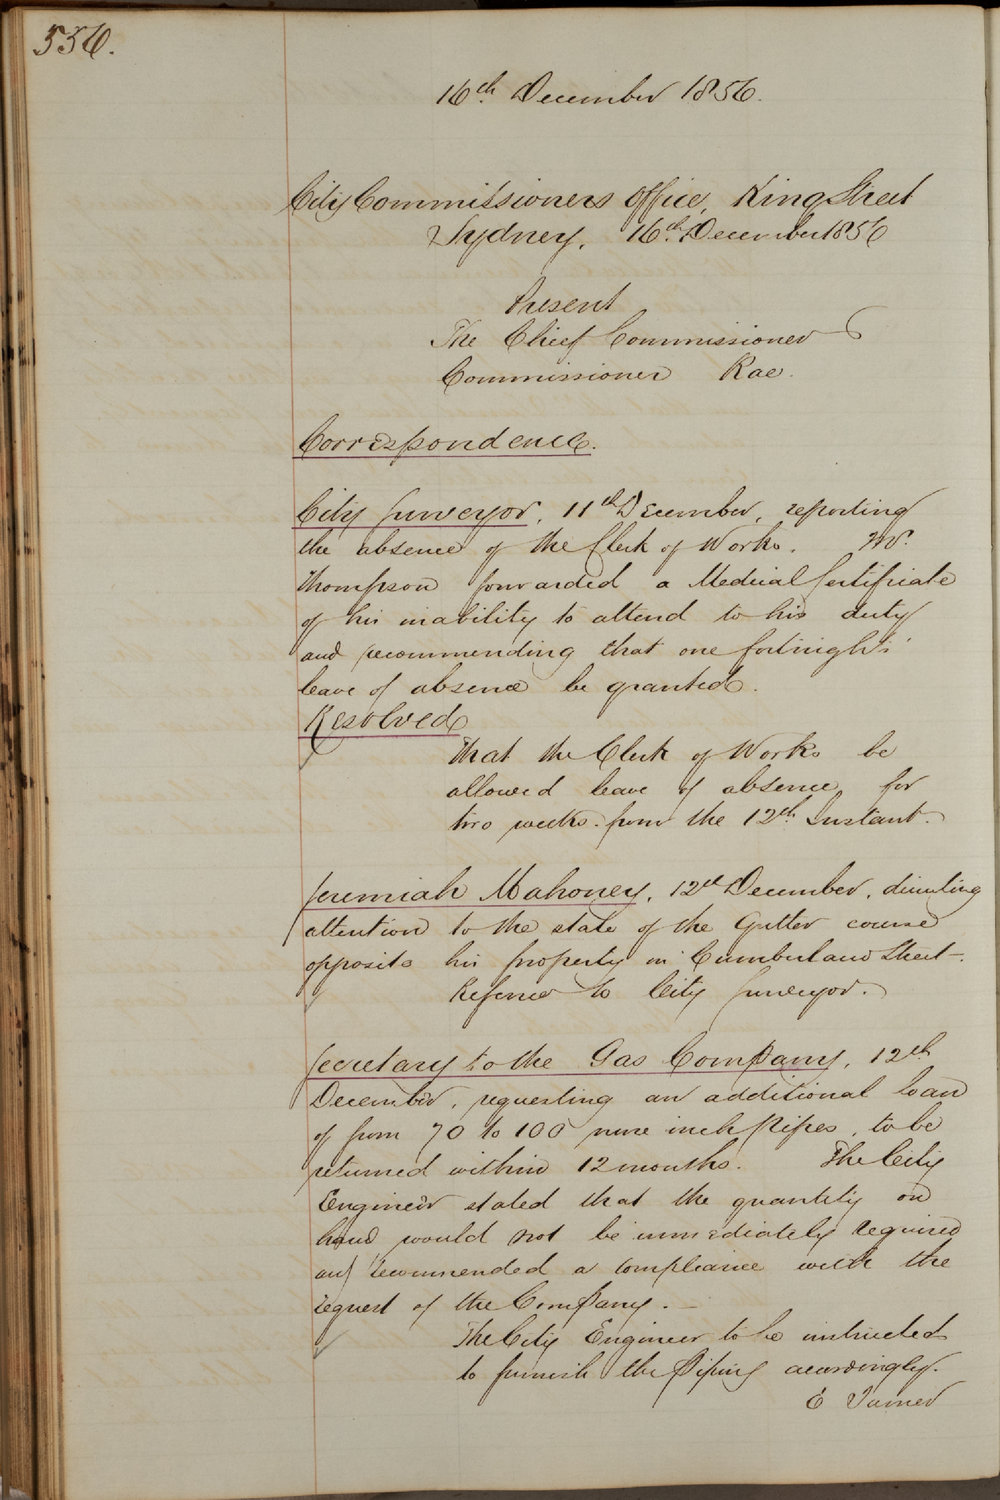 556.
16th December 1856.
City Commissioners Office, King Street
Sydney, 16th December 1856
Present
The Chief Commissioner
Commissioner Rae.
Correspondence.
City Surveyor, 11th December, reporting
the absence of the Clerk of Works. Mr.
Thompson forwarded a Medical Certificate
of his inability to attend to his duty
and recommending that one fortnight's
leave of absence be granted.
Resolved
That the Clerk of Works be
allowed leave of absence for
two weeks from the 12th Instant.
Jeremiah Mahoney, 12th December, directing
attention to the state of the Gutter course
opposite his property in Cumberland Street.
Referred to City Surveyor.
Secretary to the Gas Company, 12th
December, requesting an additional loan
of from 70 to 100 nine inch Pipes, to be
returned within 12 months. The City
Engineer stated that the quantity on
hand would not be immediately required
and recommended a compliance with the
request of the Company.
The City Engineer to be instructed
to furnish the Piping accordingly.
E